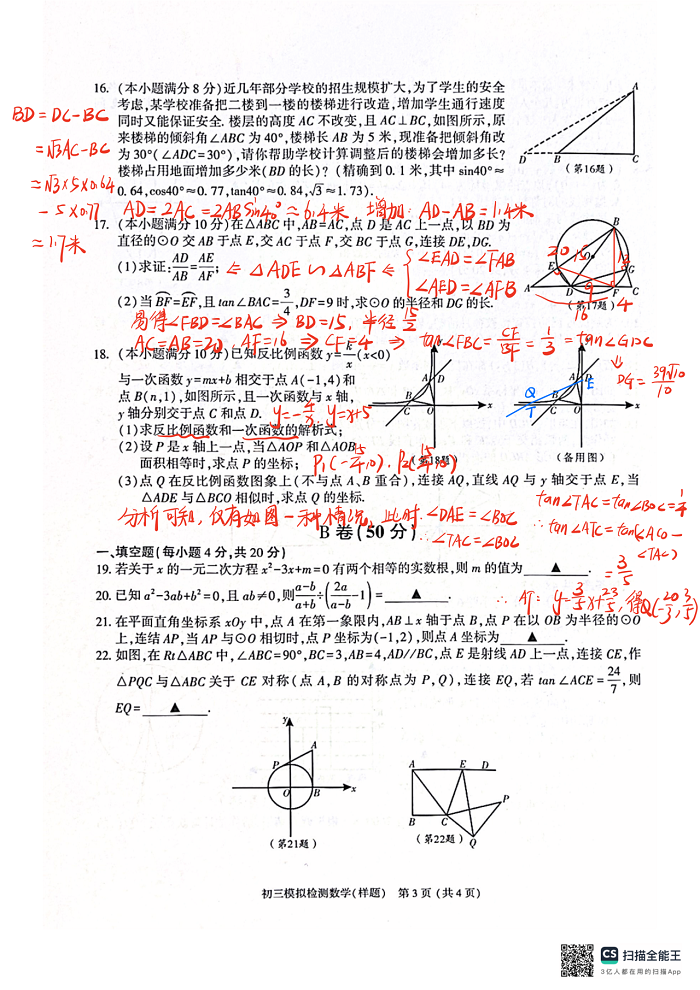 16. (本小题满分8分)近几年部分学校的招生规模扩大,为了学生的安全
考虑,某学校准备把二楼到一楼的楼梯进行改造,增加学生通行速度
同时又能保证安全. 楼层的高度 AC 不改变,且 AC⊥BC,如图所示,原
来楼梯的倾斜角∠ABC 为 40°,楼梯长 AB 为 5 米,现准备把倾斜角改
为 30°(∠ADC=30°),请你帮助学校计算调整后的楼梯会增加多长?
楼梯占用地面增加多少米(BD 的长)? (精确到 0.1 米,其中 sin40°≈
0.64,cos40°≈0.77,tan40°≈0.84,√3≈1.73).
BD=DC-BC
=√3AC-BC
≈√3×5×0.64
-5×0.77
≈1.7米
AD=2AC=2ABSin40°≈6.4米, 增加: AD-AB=1.4米
A
D
B
C
(第16题)
17. (本小题满分10分)在△ABC 中,AB=AC,点 D 是 AC 上一点,以 BD 为
直径的⊙O 交 AB 于点 E,交 AC 于点 F,交 BC 于点 G,连接 DE,DG.
(1)求证:AD/AB=AE/AF; ⇐ △ADE∽△ABF ⇐ { ∠EAD=∠FAB
∠AED=∠AFB
(2)当BF=EF,且 tan∠BAC=3/4,DF=9 时,求⊙O 的半径和 DG 的长.
易得∠FBD=∠BAC ⇒ BD=15, 半径15/2
AC=AB=20, AF=16 ⇒ CF=4 ⇒ tan∠FBC=CF/BF=1/3=tan∠GDC
⇓
DG=39√10/10
B
20
15
12
O
E
G
A
D
9
F
C
4
16
(第17题)
18. (本小题满分10分)已知反比例函数 y=k/x(x<0)
与一次函数 y=mx+b 相交于点 A(-1,4)和
点 B(n,1),如图所示,且一次函数与 x 轴,
y 轴分别交于点 C 和点 D. y=-4/x, y=x+5
(1)求反比例函数和一次函数的解析式;
(2)设 P 是 x 轴上一点,当△AOP 和△AOB
面积相等时,求点 P 的坐标; P₁(-15/4,0), P₂(15/4,0)
(3)点 Q 在反比例函数图象上(不与点 A、B 重合),连接 AQ,直线 AQ 与 y 轴交于点 E,当
△ADE 与△BCO 相似时,求点 Q 的坐标.
y
A
D
B
C
O
x
(第18题)
y
A
D
E
Q
B
T
C
O
x
(备用图)
分析可知, 仅有如图一种情况, 此时 ∠DAE=∠BOC
∴∠TAC=∠BOC
tan∠TAC=tan∠BOC=1/4
∴tan∠ATC=tan(∠ACO-
∠TAC)
=3/5
∴AT: y=3/5x+23/5, 得Q(-20/3,3/5)
B 卷(50 分)
一、填空题(每小题 4 分,共 20 分)
19. 若关于 x 的一元二次方程 x²-3x+m=0 有两个相等的实数根,则 m 的值为 ▲ .
20. 已知 a²-3ab+b²=0,且 ab≠0,则(a-b)/(a+b)÷(2a/(a-b)-1)= ▲ .
21. 在平面直角坐标系 xOy 中,点 A 在第一象限内,AB⊥x 轴于点 B,点 P 在以 OB 为半径的⊙O
上,连结 AP,当 AP 与⊙O 相切时,点 P 坐标为(-1,2),则点 A 坐标为 ▲ .
22. 如图,在 Rt△ABC 中,∠ABC=90°,BC=3,AB=4,AD//BC,点 E 是射线 AD 上一点,连接 CE,作
△PQC 与△ABC 关于 CE 对称(点 A,B 的对称点为 P,Q),连接 EQ,若 tan ∠ACE=24/7,则
EQ= ▲ .
y
A
P
O
B
x
(第21题)
A
E
D
P
B
C
Q
(第22题)
初三模拟检测数学(样题) 第 3 页 (共 4 页)
CS 扫描全能王
3亿人都在用的扫描App